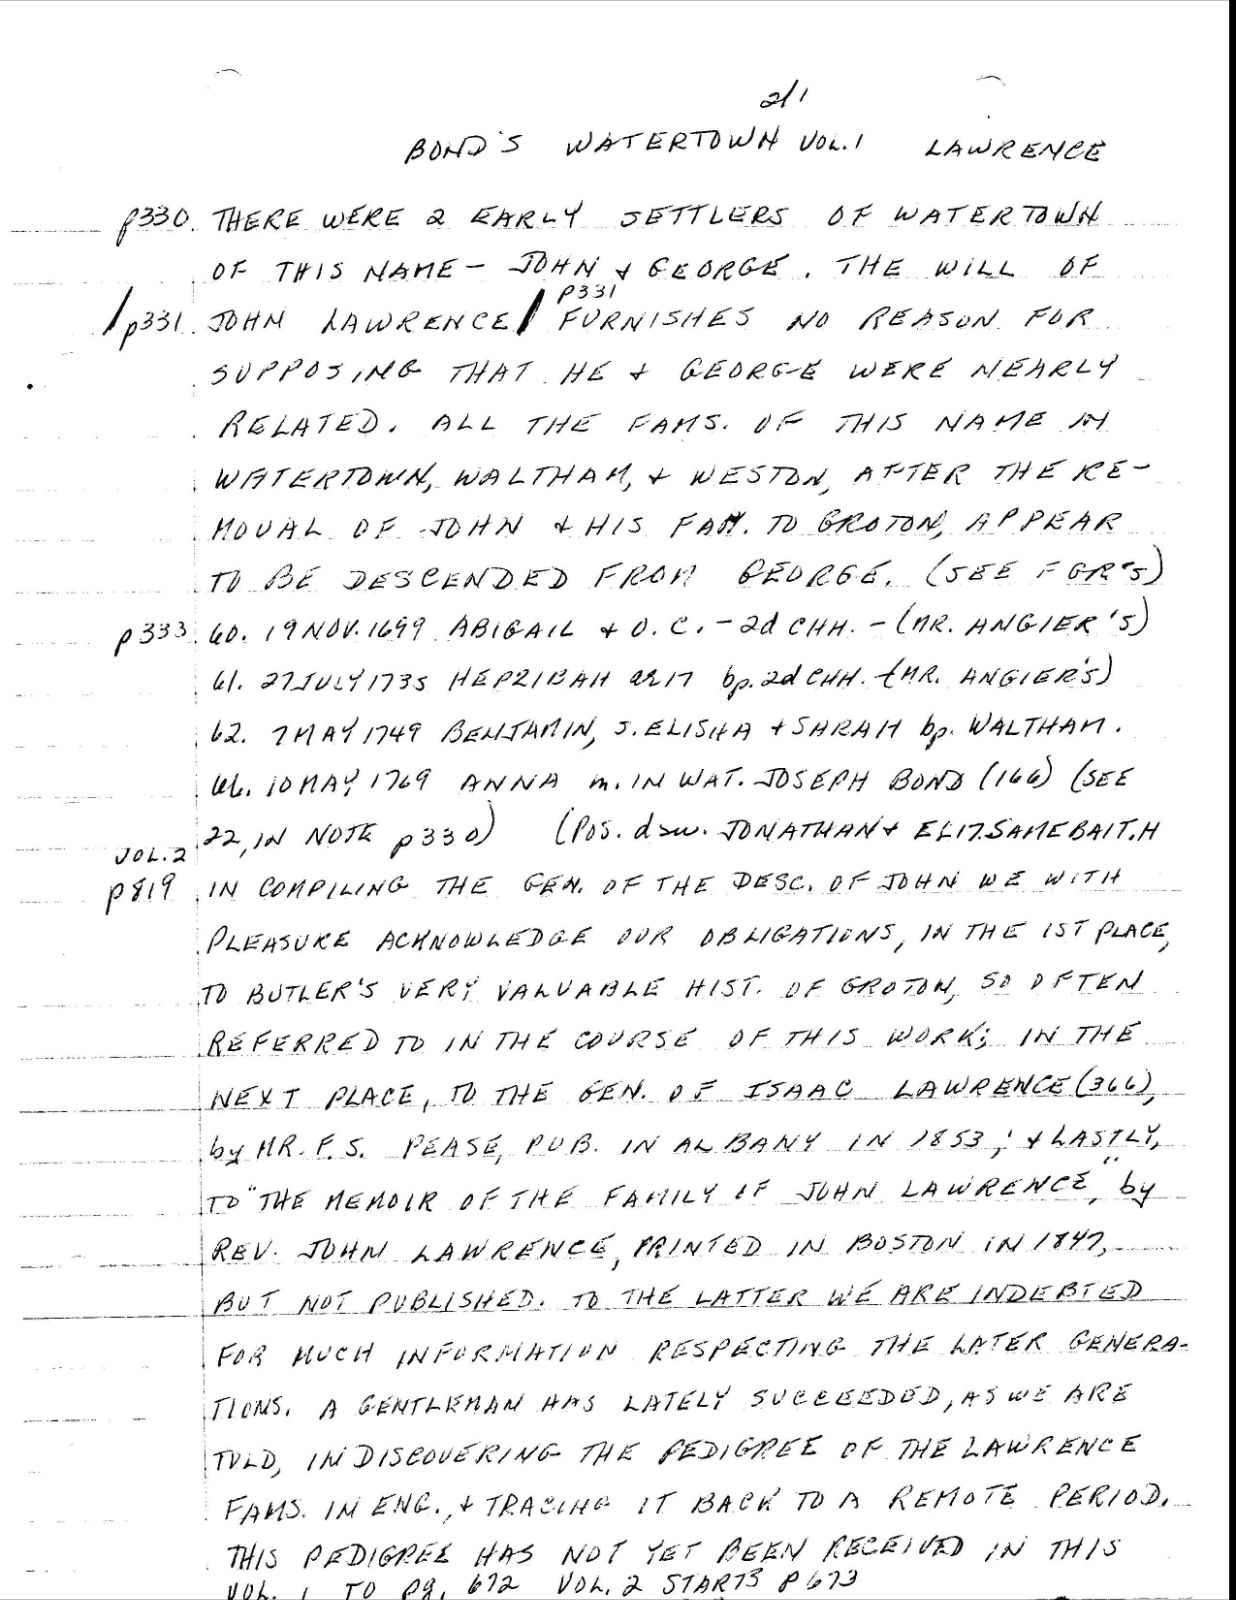 2/1
BOND'S WATERTOWN VOL.1 LAWRENCE
p330. THERE WERE 2 EARLY SETTLERS OF WATERTOWN
OF THIS NAME - JOHN & GEORGE. THE WILL OF
p331
/p331. JOHN LAWRENCE/ FURNISHES NO REASON FOR
SUPPOSING THAT HE & GEORGE WERE NEARLY
RELATED. ALL THE FAMS. OF THIS NAME IN
WATERTOWN, WALTHAM, & WESTON, AFTER THE RE-
MOVAL OF JOHN & HIS FAM. TO GROTON, APPEAR
TO BE DESCENDED FROM GEORGE. (SEE FGR'S)
p333. 60. 19 NOV. 1699 ABIGAIL & O.C. - 2d CHH. - (MR. ANGIER'S)
61. 27 JULY 1735 HEPZIBAH ae 17 bp. 2d CHH. (MR. ANGIER'S)
62. 7 MAY 1749 BENJAMIN, S. ELISHA & SARAH bp. WALTHAM.
66. 10 MAY 1769 ANNA m. IN WAT. JOSEPH BOND (166) (SEE
22, IN NOTE p330) (POS. d JONATHAN & ELIZ.
VOL. 2
p819 IN COMPILING THE GEN. OF THE DESC. OF JOHN WE WITH
PLEASURE ACKNOWLEDGE OUR OBLIGATIONS, IN THE 1ST PLACE,
TO BUTLER'S VERY VALUABLE HIST. OF GROTON, SO OFTEN
REFERRED TO IN THE COURSE OF THIS WORK; IN THE
NEXT PLACE, TO THE GEN. OF ISAAC LAWRENCE (366),
by MR. F.S. PEASE, PUB. IN ALBANY IN 1853; & LASTLY,
TO "THE MEMOIR OF THE FAMILY OF JOHN LAWRENCE," by
REV. JOHN LAWRENCE, PRINTED IN BOSTON IN 1847,
BUT NOT PUBLISHED. TO THE LATTER WE ARE INDEBTED
FOR MUCH INFORMATION RESPECTING THE LATER GENERA-
TIONS. A GENTLEMAN HAS LATELY SUCCEEDED, AS WE ARE
TOLD, IN DISCOVERING THE PEDIGREE OF THE LAWRENCE
FAMS. IN ENG., & TRACING IT BACK TO A REMOTE PERIOD.
THIS PEDIGREE HAS NOT YET BEEN RECEIVED IN THIS
VOL. 1 TO pg. 672 VOL. 2 STARTS P673